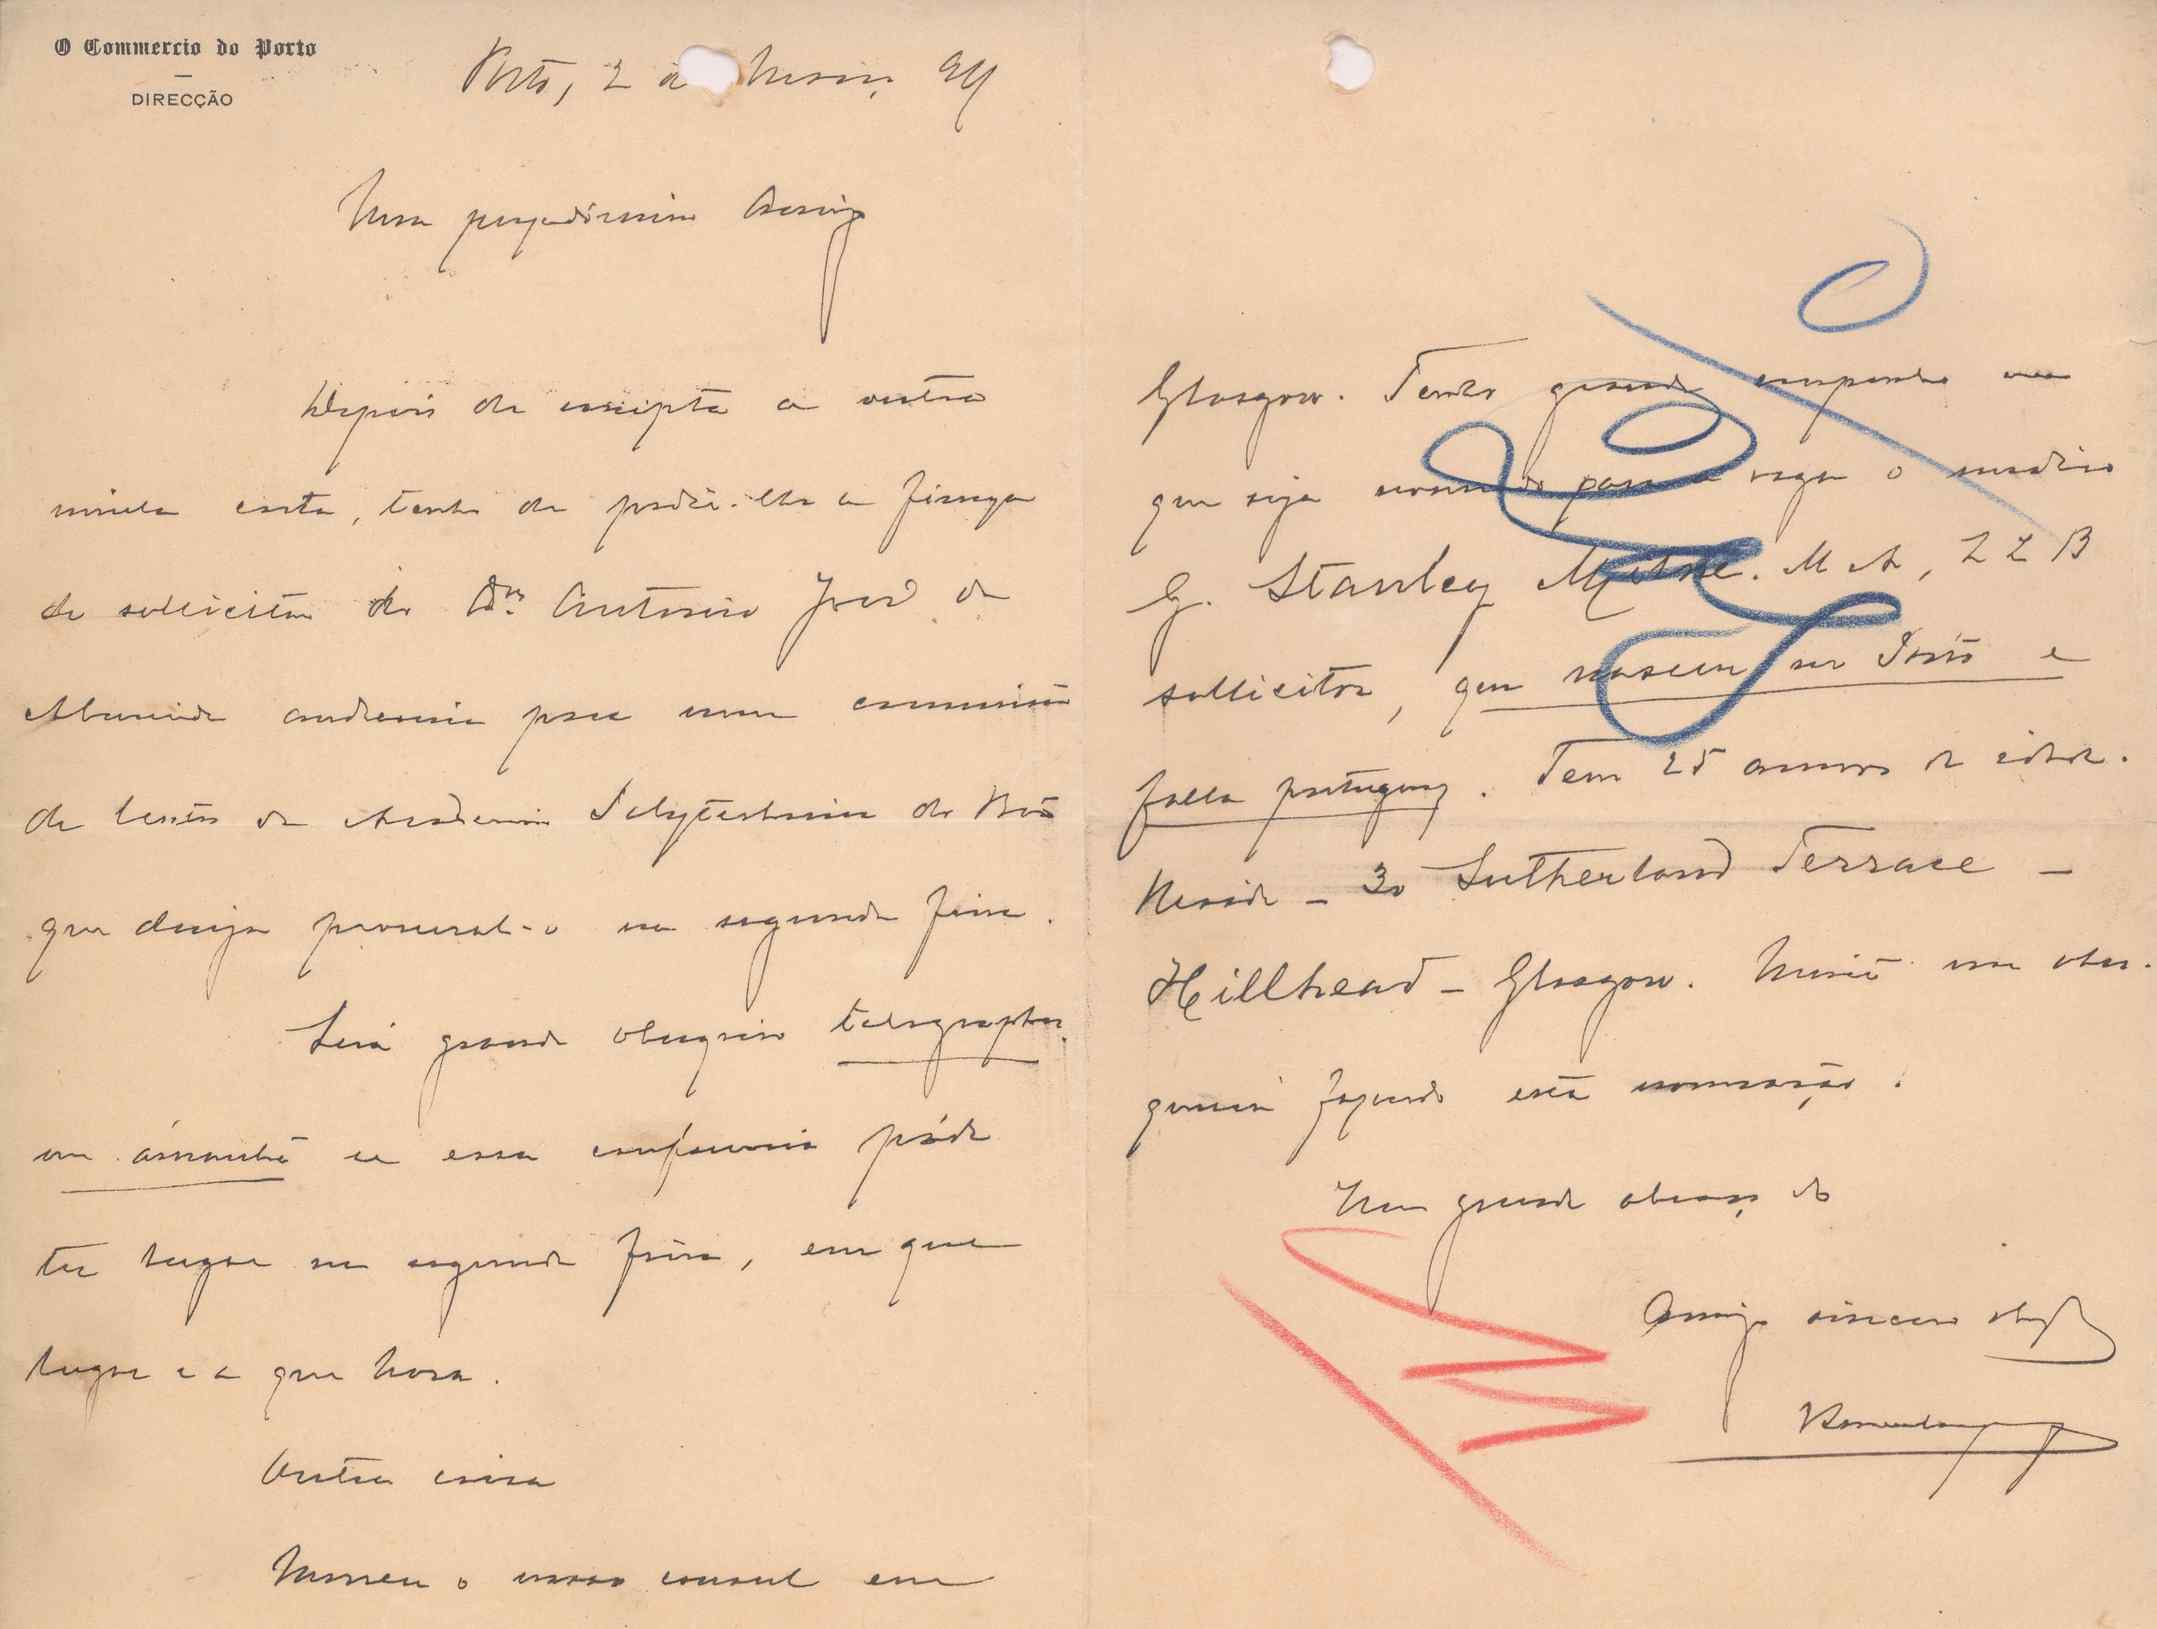 O Commercio do Porto
DIRECÇÃO
Porto, 2 de Março 94
Meu presadissimo Amigo
Depois de escripta a outra
minha carta, tenho de pedir-lhe a fineza
de sollicitar do Dr. Antonio José de
Almeida audiencia para uma commissão
de lentes da Academia Polytechnica do Porto
que deseja procural-o na segunda feira.
Será grande obsequio telegraphar
me ámanhã se essa conferencia póde
ter logar na segunda feira, em que
lugar e a que hora.
Outra coisa
Morreu o nosso consul em
Glasgow. Tenho grande empenho em
que seja nomeado para a vaga o
G. Stanley Milne. M A, L L B
sollicitor, que nasceu no Porto e
falla portuguez. Tem 25 annos de edade.
Reside - 30 Sutherland Terrace -
Hillhead - Glasgow. Muito me obse-
quiará fazendo esta nomeação.
Um grande abraço do
Amigo sincero